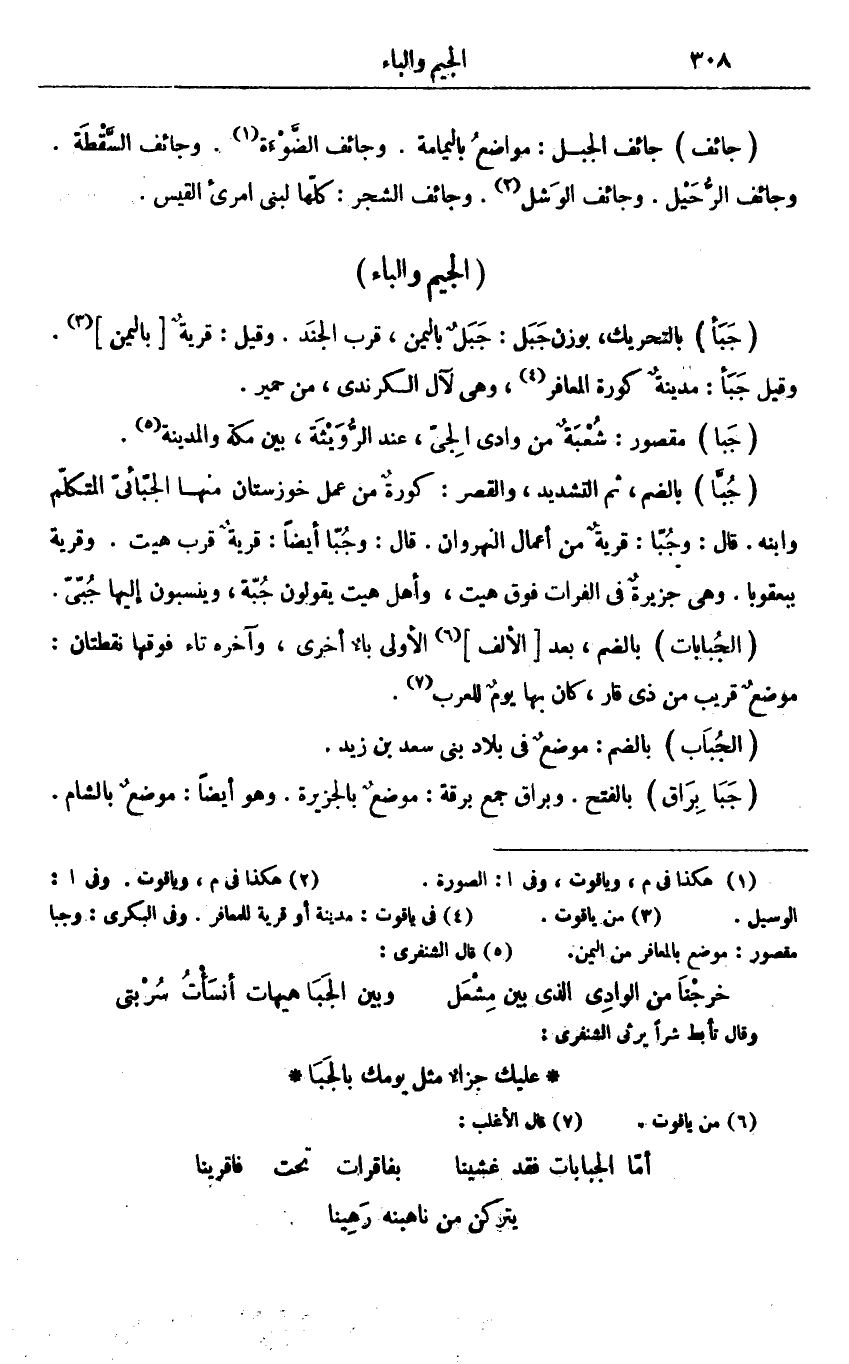 ٣٠٨ الجيم والباء
( جائف ) جائف الجبـل : مواضعُ باليمامة . وجائف الضَّوْءة(١) . وجائف السَّقْطَة .
وجائف الرُّحَيْل . وجائف الوَشل(٢) . وجائف الشجر : كلّها لبنى امرئ القيس .
( الجيم والباء )
( جَبَأ ) بالتحريك، بوزن جَبَل : جَبَلٌ باليمن ، قرب الجنَد . وقيل : قريةٌ [ باليمن ](٣) .
وقيل جَبَأ : مدينةٌ كورة المعافر(٤) ، وهى لآل الـكرندى ، من حمير .
( جَبا ) مقصور : شُعْبَةٌ من وادى الجىّ ، عند الرُّوَيْثَة ، بين مكة والمدينة(٥) .
( جُبَّا ) بالضم ، ثم التشديد ، والقصر : كورةٌ من عمل خوزستان منهـا الجبّائىّ المتكلّم
وابنه . قال : وجُبّا : قريةٌ من أعمال النهروان . قال : وجُبّا أيضاً : قريةٌ قرب هيت . وقرية
ببعقوبا . وهى جزيرةٌ فى الفرات فوق هيت ، وأهل هيت يقولون جُبّة ، وينسبون إليها جُبّىّ .
( الجُبابات ) بالضم ، بعد [ الألف ](٦) الأولى باءٌ أخرى ، وآخره تاء فوقها نقطتان :
موضعٌ قريب من ذى قار ، كان بها يومٌ للعرب(٧) .
( الجُبَاب ) بالضم : موضعٌ فى بلاد بنى سعد بن زيد .
( جَبَا بِرَاق ) بالفتح . وبراق جمع برقة : موضعٌ بالجزيرة . وهو أيضاً : موضعٌ بالشام .
(١) هكذا فى م ، وياقوت ، وفى ا : الصورة . (٢) هكذا فى م ، وياقوت . وفى ا :
الوسيل . (٣) من ياقوت . (٤) فى ياقوت : مدينة أو قرية للمعافر . وفى البكرى : وجبا
مقصور : موضع بالمعافر من اليمن. (٥) قال الشنفرى :
خرجْنَا من الوادِى الذى بين مِشْعَل وبين الجَبَا هيهات أنسَأْتُ سُرْبتى
وقال تأبط شراً يرثى الشنفرى :
* عليك جزاءٌ مثل يومك بالجَبَا *
(٦) من ياقوت . (٧) قال الأغلب :
أمّا الجبابات فقد غشينا بفاقرات تحت فاقرينا
يتركن من ناهبنه رَهِينا .